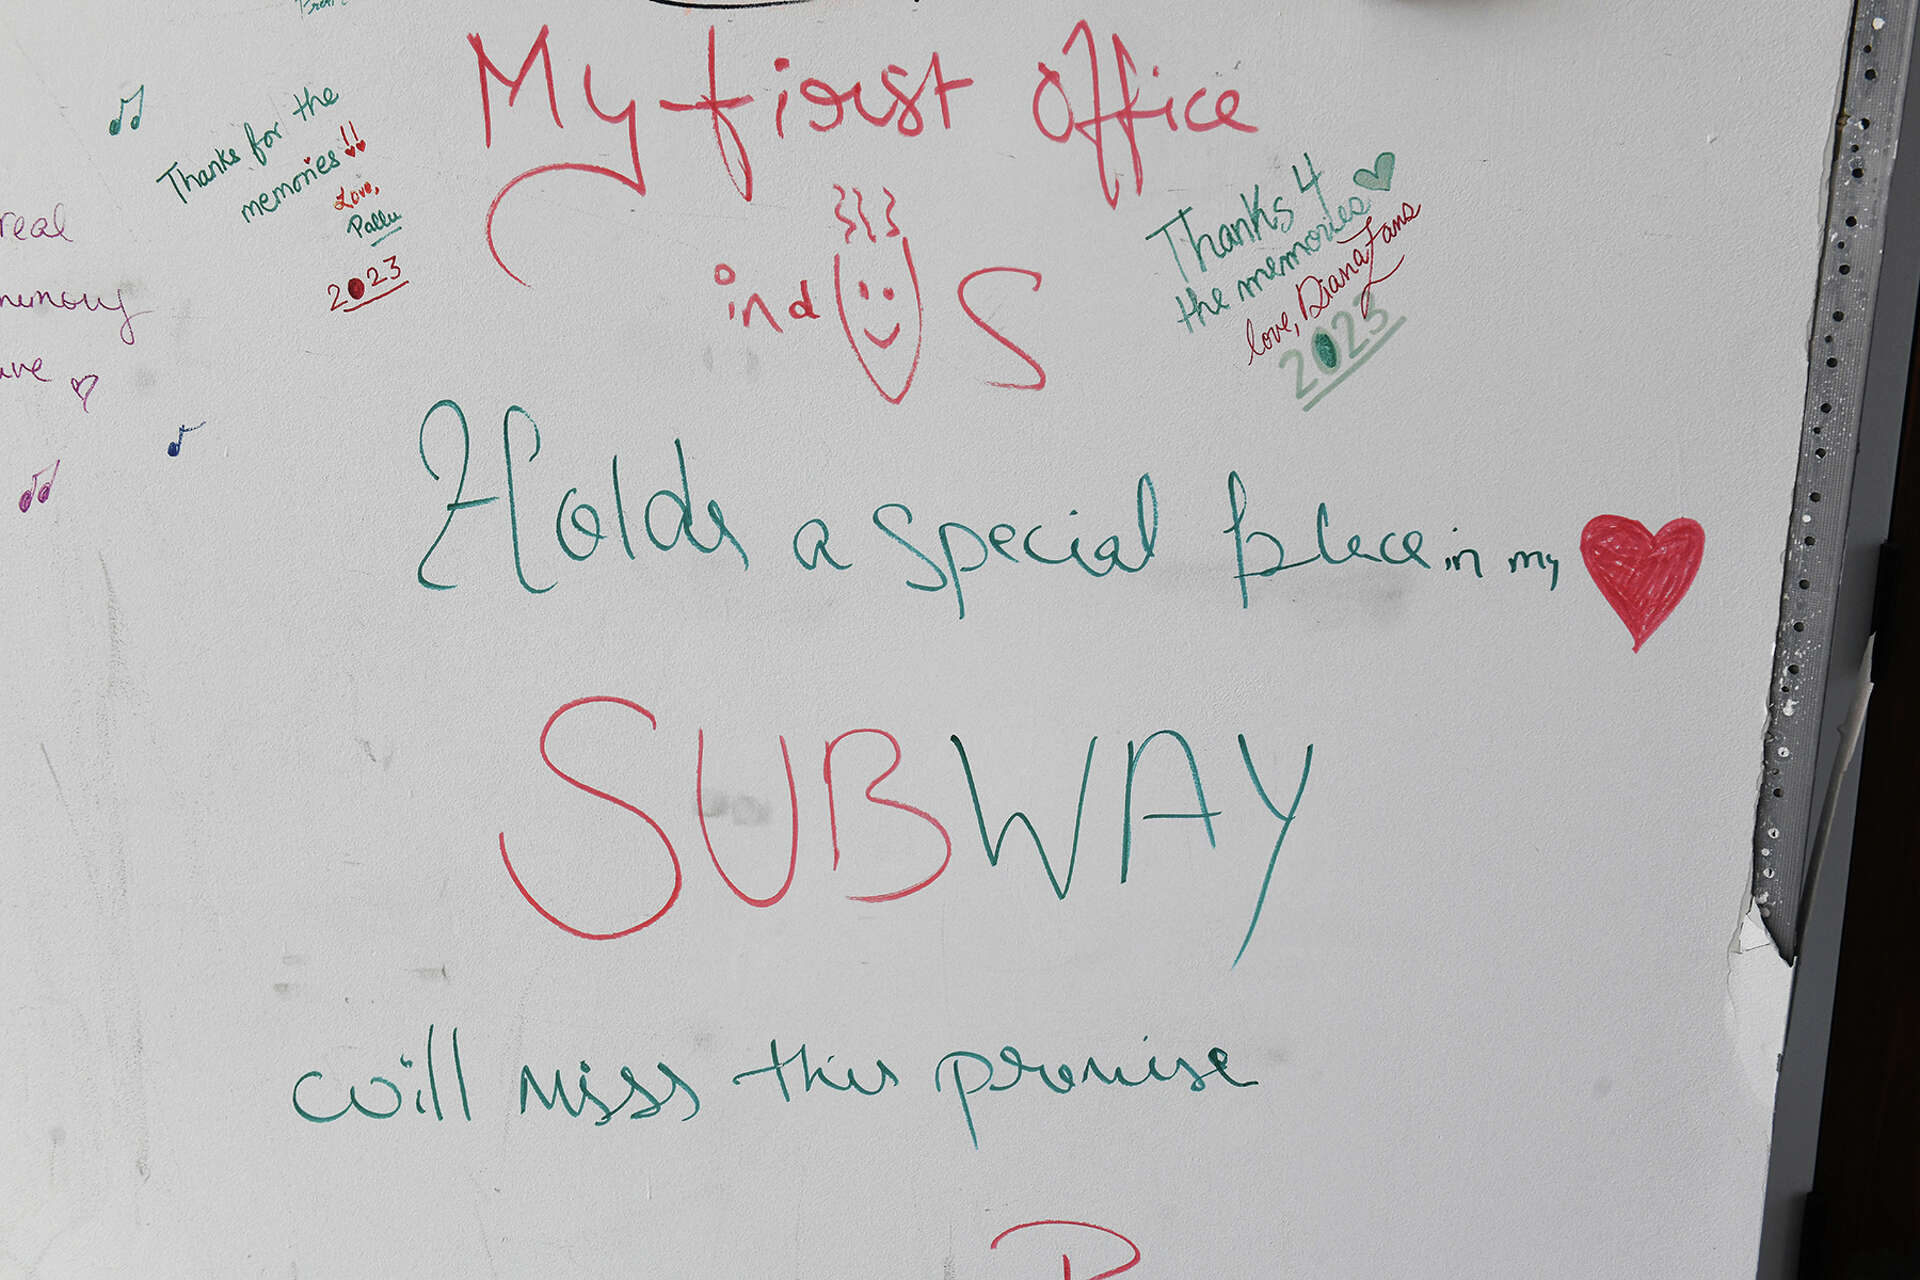 My first office
in d U S
Holds a special place in my
SUBWAY
will miss this promise
Thanks for the
memories!!
Love,
Pallu
2023
Thanks 4
the memories
love, Diana Fans
2023
real